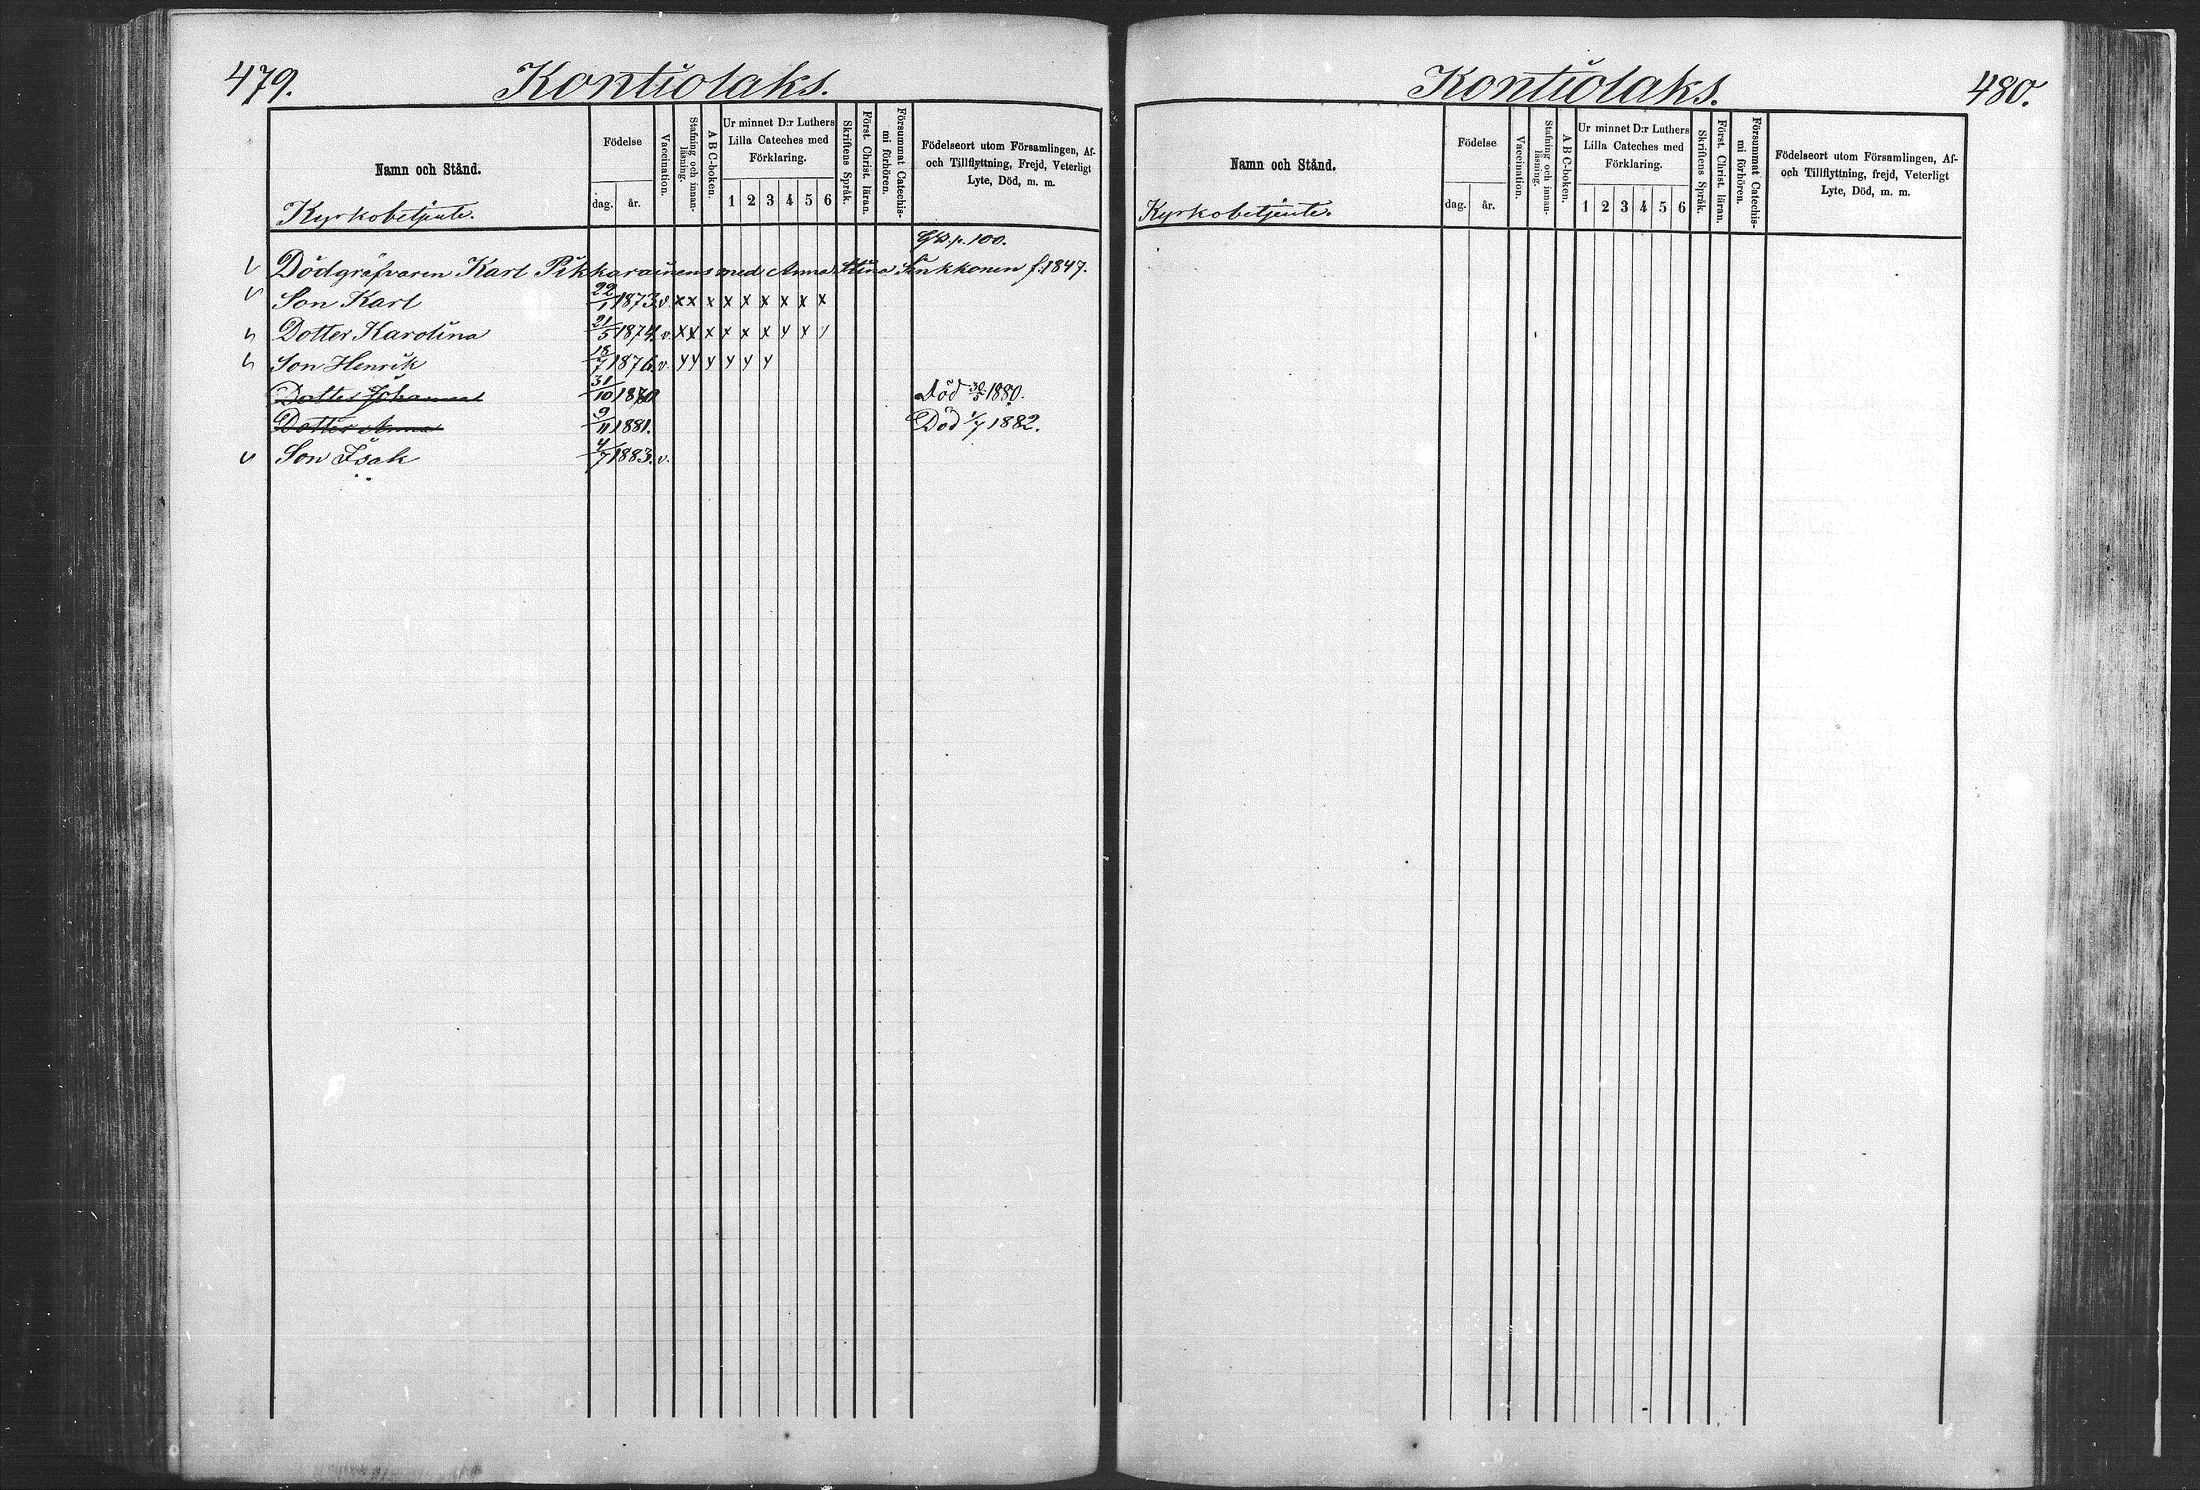 479.
Kontiolaks.
Namn och Stånd.
Kyrkobetjente.
Födelse
dag.
år.
Vaccination.
Stafning och innan-
läsning.
A B C-boken.
Ur minnet D:r Luthers
Lilla Cateches med
Förklaring.
1 2 3 4 5 6
Skriftens Språk.
Först. Christ. läran.
Försummat Catechis-
mi förhören.
Födelseort utom Församlingen, Af-
och Tillflyttning, Frejd, Veterligt
Lyte, Död, m. m.
p. 100.
Dödgräfvaren Karl Pikkarainens med Anna Stina f. 1847.
Son Karl 22/1 1873. v. x x x x x x x x x
Dotter Karolina 21/5 1874. v. x x x x x x x x x
Son Henrik 18/7 1876. v. x x x x x x
Dotter Johanna 31/10 Död 30/5 1880.
Dotter Anna 9/11 1881. Död 1/7 1882.
Son Isak 4/7 1883. v.
Kontiolaks.
480.
Namn och Stånd.
Kyrkobetjente.
Födelse
dag.
år.
Vaccination.
Stafning och innan-
läsning.
A B C-boken.
Ur minnet D:r Luthers
Lilla Cateches med
Förklaring.
1 2 3 4 5 6
Skriftens Språk.
Först. Christ. läran.
Försummat Catechis-
mi förhören.
Födelseort utom Församlingen, Af-
och Tillflyttning, frejd, Veterligt
Lyte, Död, m. m.